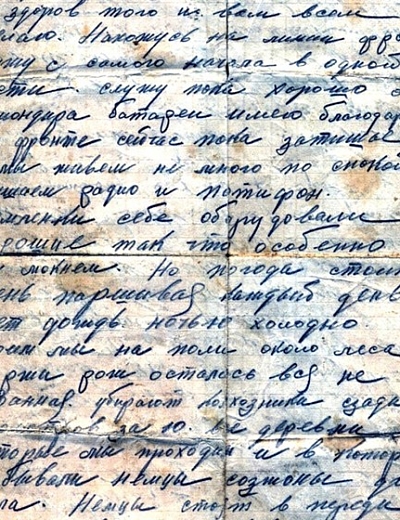 здоров того и вам всем
лаю. Нахожусь на линии фро
жу с самого начала в одной
сти. служу пока хорошо о
мандира батареи имею благодар
фронте сейчас пока затишье
мы живем не много по спокой
шаем радио и патифон.
землянки себе оборудовали
рошие так что особенно
и мокнем. Но погода стоит
ень паршивая каждый день
ет дождь. ночью холодно.
оим мы на поли около леса
ржи рож осталась вся не
ранная убирают колхозники сзади
за 10. деревни
торые мы проходим и в котор
бывали немцы созжоны д
ла. Немцы стоят в переди